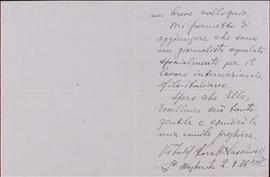 un breve colloquio.
Mi permetto di
aggiungere che sono
un giornalista segnalato
specialmente per il
lavoro internazionale
filo-italiano.
Spero che Ella,
Eccellenza sarà tanto
gentile e esaudirà la
mia umile preghiera.
St. Margherita 2. 8.